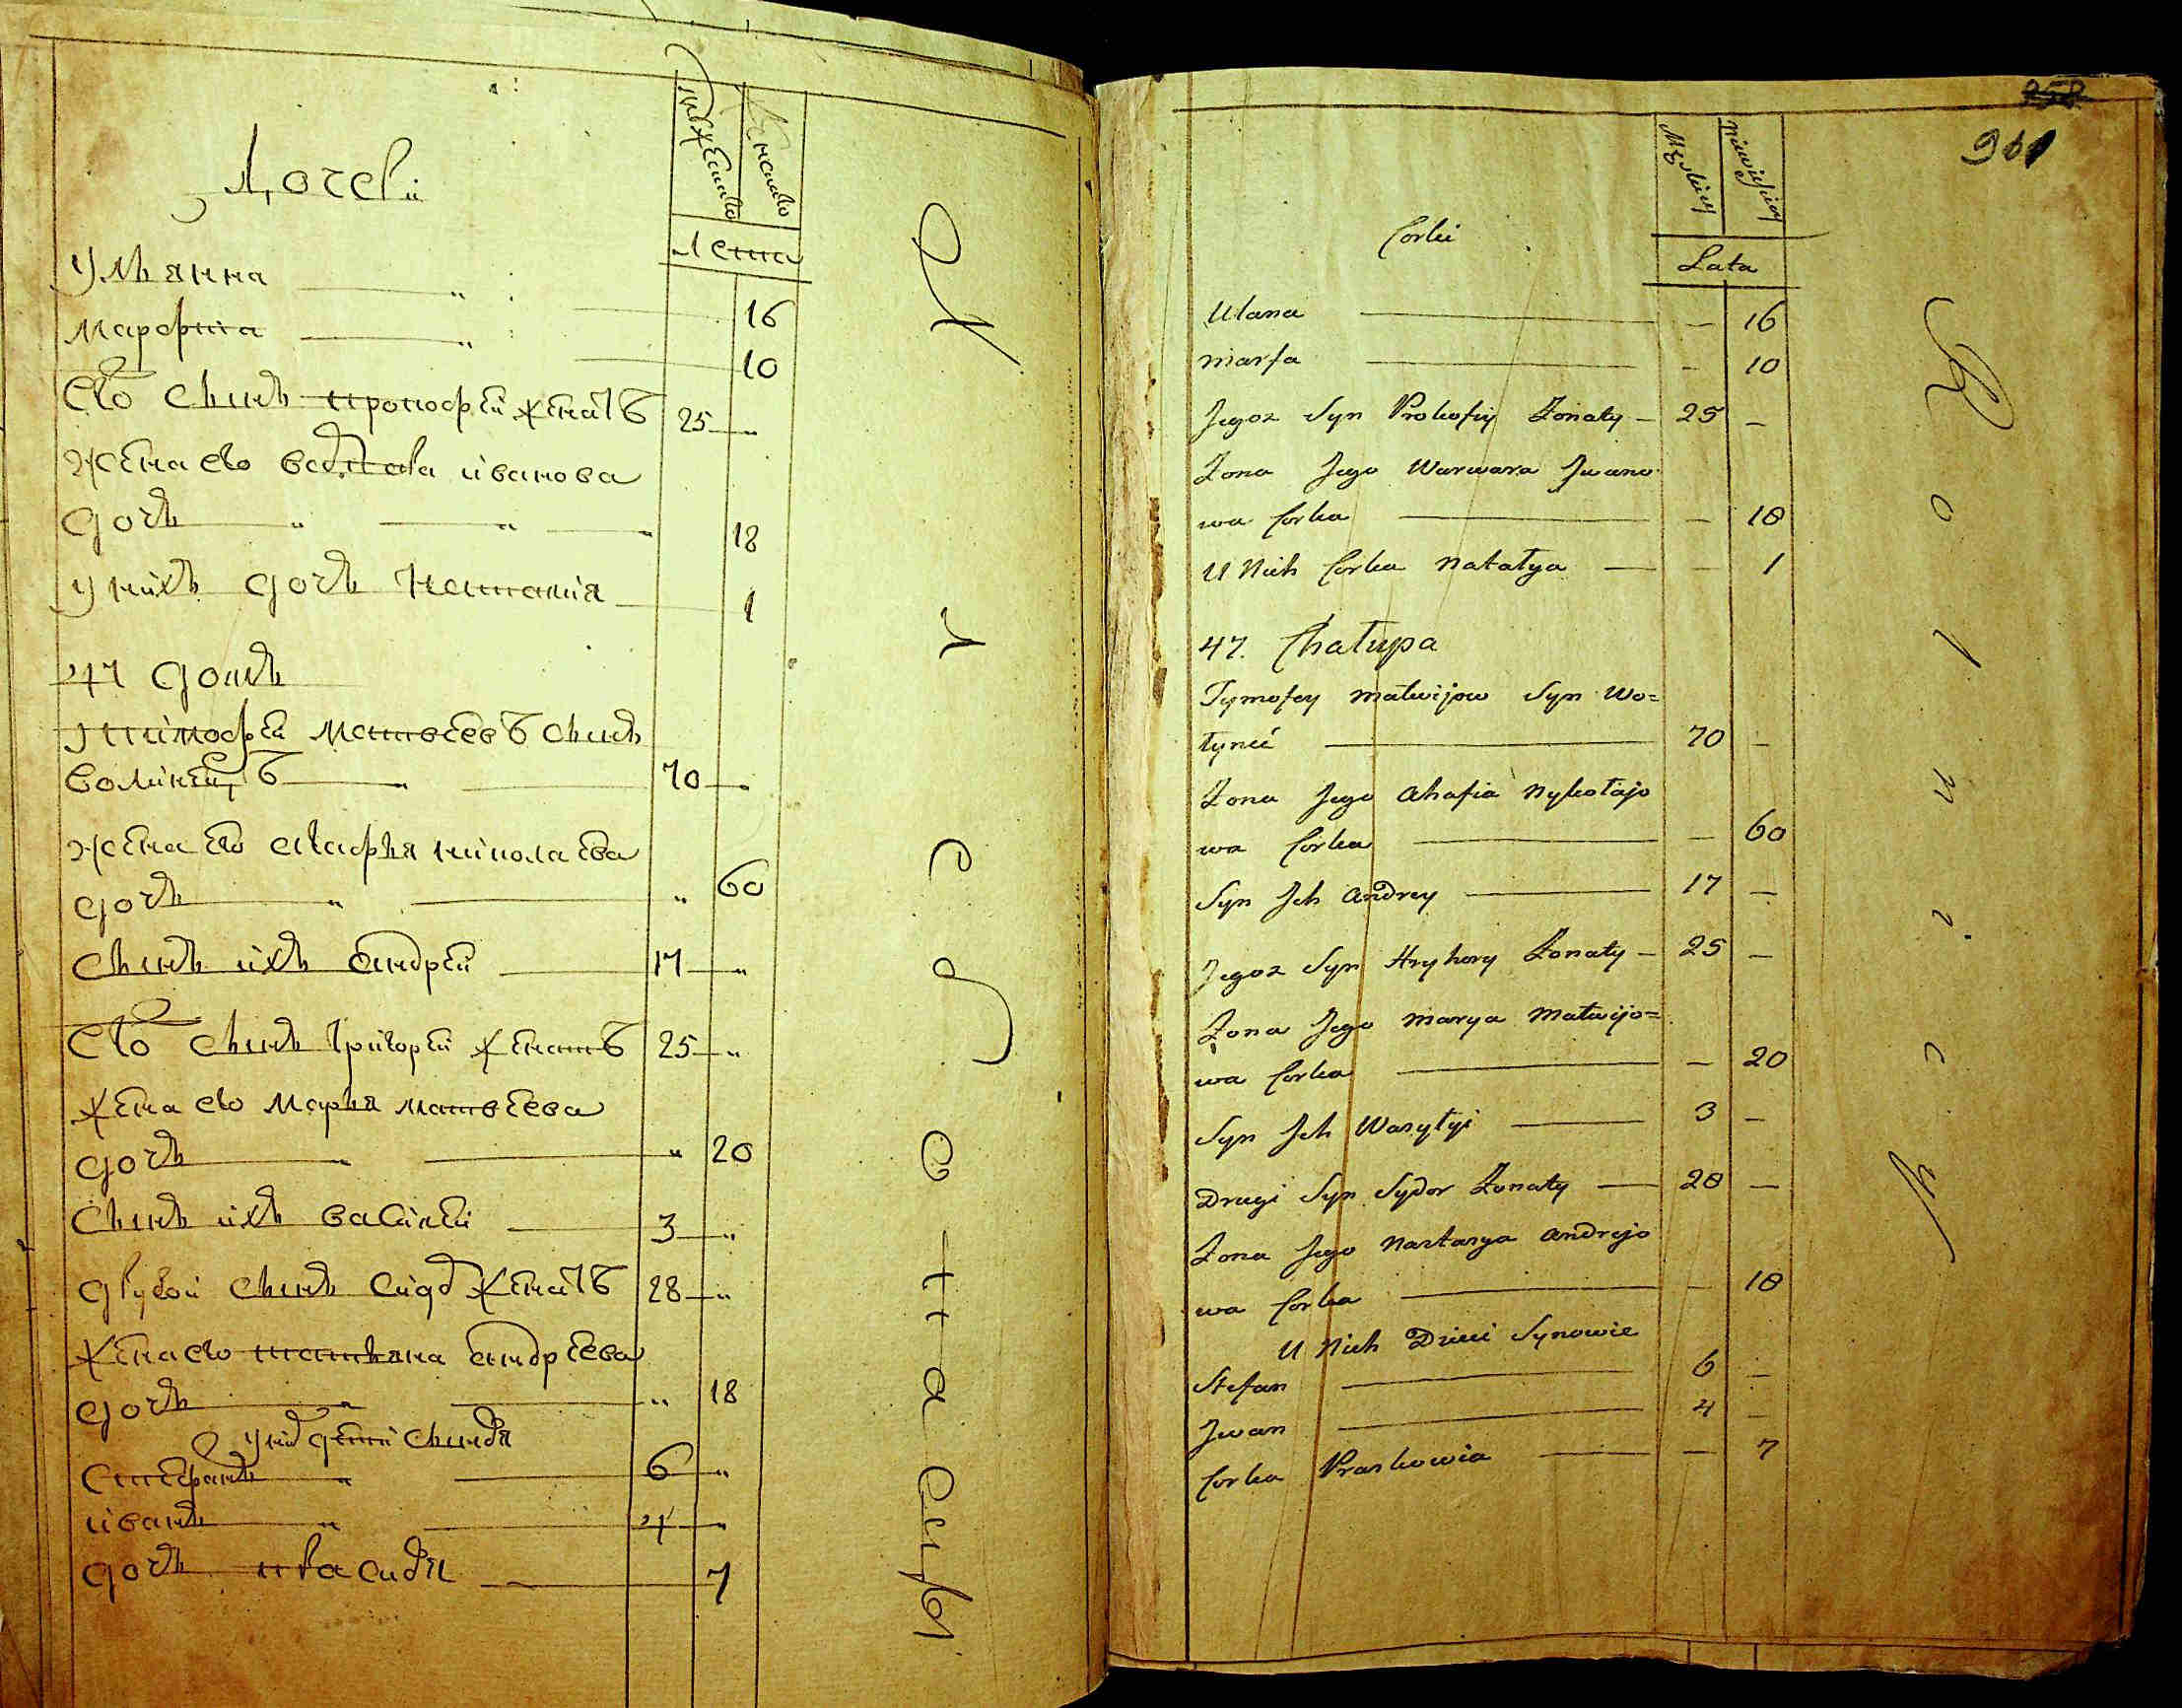 Дочери
мужеска
женска
лета
Ульянна 16
Марфита 10
Его сынъ прокофей женатъ 25
жена его варвара иванова
дочь 18
у нихъ дочь Наталия 1
47 домъ
Тимофей Матвеевъ сынъ
волинецъ 70
жена его агафья николаева
дочь 60
сынъ ихъ андрей 17
Его сынъ григорей женатъ 25
жена его Марья матвеева
дочь 20
сынъ ихъ василей 3
другой сынъ сидор женатъ 28
жена его татьяна андреева
дочь 18
у них дети сыновя
стефанъ 6
иванъ 4
дочь
258
361
Męskiey
Niewieściey
Corki
Lata
Ulana — 16
Marfa — 10
Jegoz Syn Prokofiy Żonaty — 25 —
Żona Jego Warwara Jwano
wa Corka — 18
U Nich Corka Natalya — 1
47. Chałupa
Tymofey Matwijow Syn Wo=
łynić 70 —
Żona Jego Ahafia Nykołajo
wa Corka — 60
Syn Jch Andrey 17 —
Jegoz Syn Hryhory Żonaty — 25 —
Żona Jego Marya Matwijo=
wa Corka — 20
Syn Jch Wasyłyi 3 —
Drugi Syn Sydor Żonaty — 28 —
Żona Jego Nastasya Andrejo
wa Corka — 18
U Nich Dzieci Synowie
Stefan 6 —
Jwan 4 —
Corka Praskowia — 7
R o l n i c y